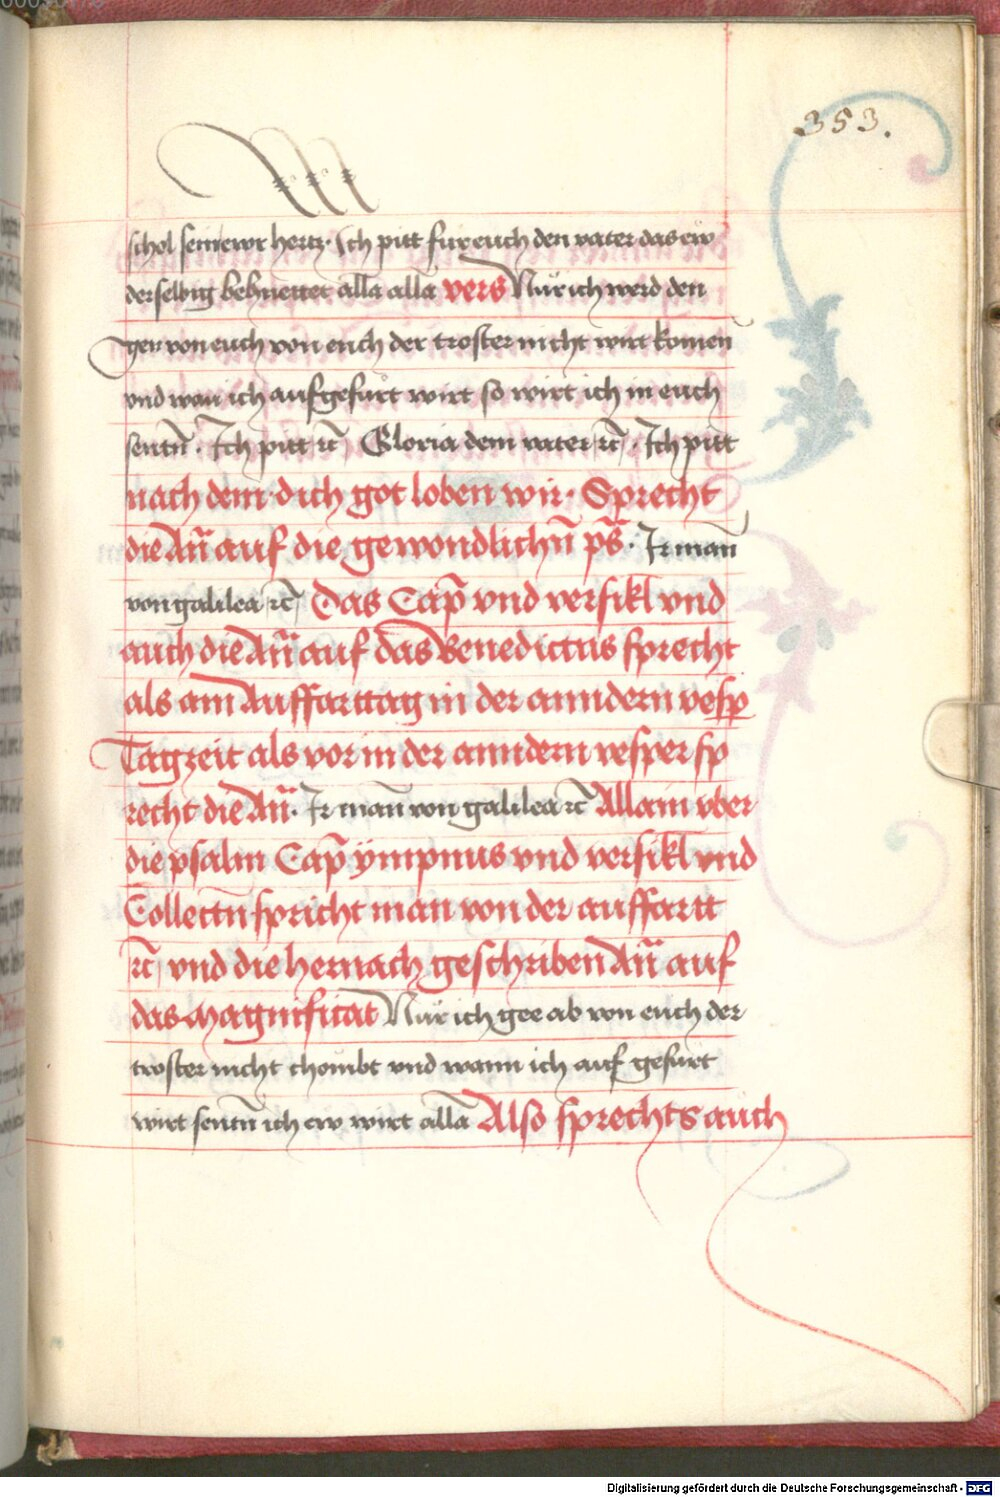 353.
schol sein ewr hertz. Ich pitt fur euch den vater das ew
derselbig behuettet alla alla vers Nur ich werd den
gen von euch von euch der troster nicht wirt komen
vnd wan ich aufgefurt wirt so wirt ich in euch
sentn̄. Ich pitt ꝛc Gloria dem vater ꝛc. Ich pitt
nach dem. dich got loben wir. Sprecht
die Añ auf die gewondlichn̄ ps̄. Ir man̄
von galilea ꝛc Das Cap̄ vnd versikl vnd
auch die Añ auf das Benedictus sprecht
als am Auffarttag in der anndern vesp̄
Tagzeit als vor in der anndern vesper sp
recht die Añ. Ir man̄ von galilea ꝛc Allain vber
die psalm Cap̄ ÿmpnus vnd versikl vnd
Collectn̄ spricht man von der auffartt
ꝛc vnd die hernach geschriben Añ auf
das Magnificat Nur ich gee ab von euch der
troster nicht chombt vnd wann ich auf gefurt
wirt sentn̄ ich ew wirt alla Also sprechts auch
Digitalisierung gefördert durch die Deutsche Forschungsgemeinschaft - DFG